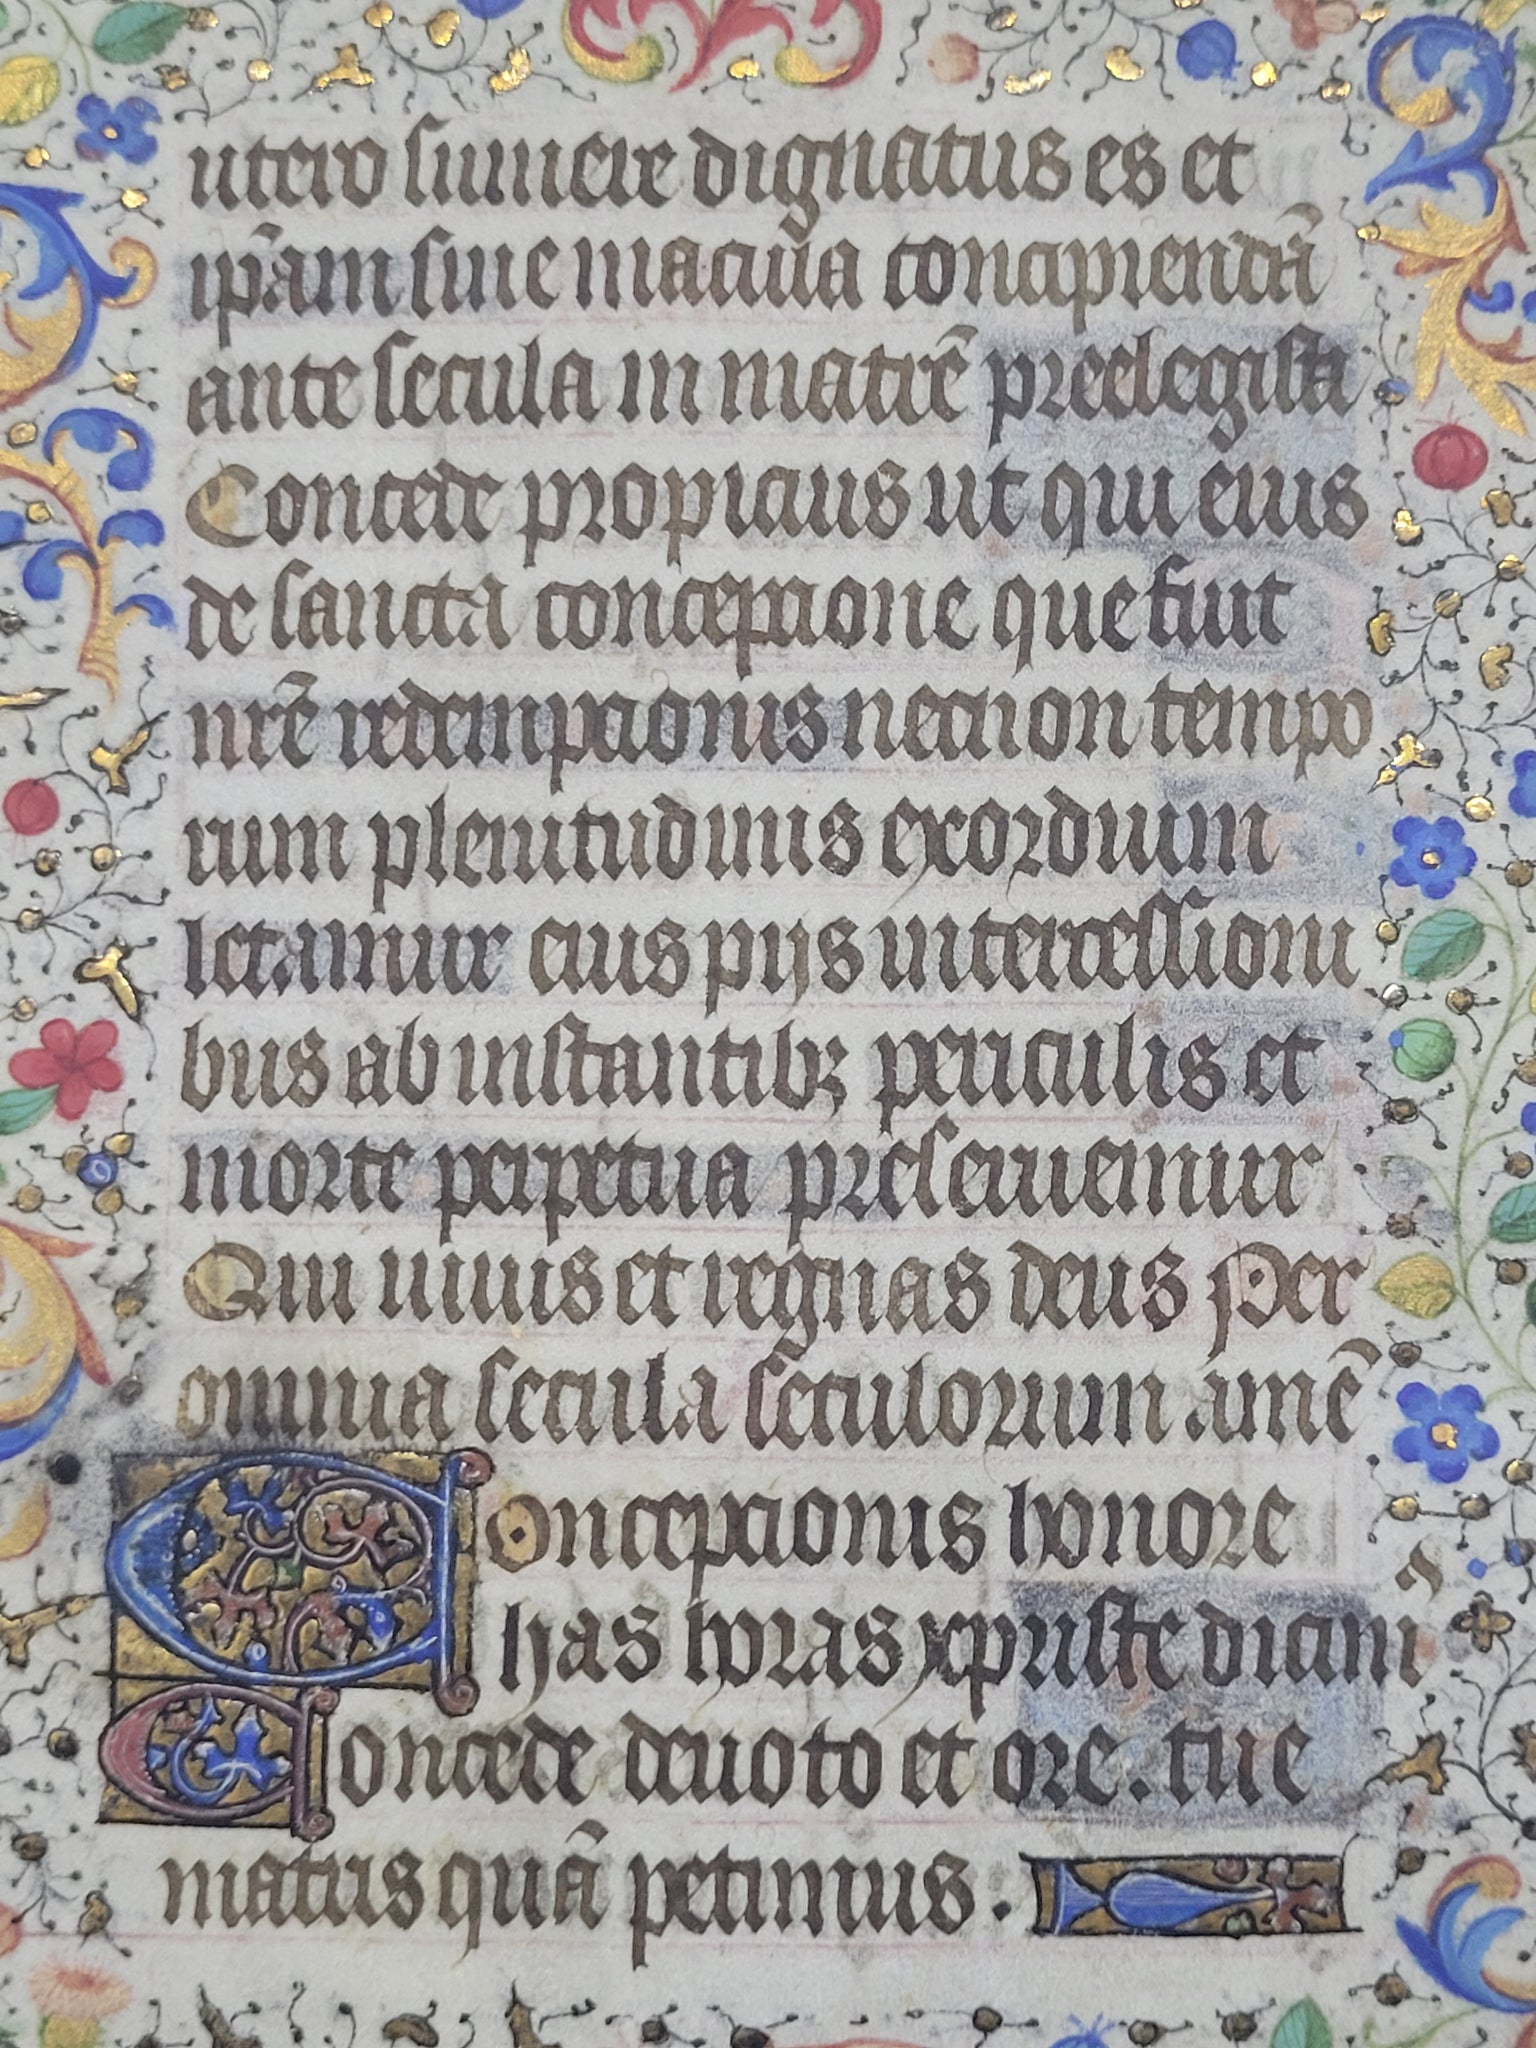 utero sumere dignatus es et
ip̄am sine macula concipiendā
ante secula in matrē preelegisti
Concede propicius ut qui eius
de sancta conceptione que fuit
nr̄ē redemptionis necnon tempo
rum plenitudinis exordium
letamur eius pijs intercessioni
bus ab instantibꝫ periculis et
morte perpetua preseruemur
Qui uiuis et regnas deus Per
omnia secula seculorum amē
Conceptionis honore
has horas xpriste dicim᷒
Concede deuoto et ore. tue
matris quā petimus.